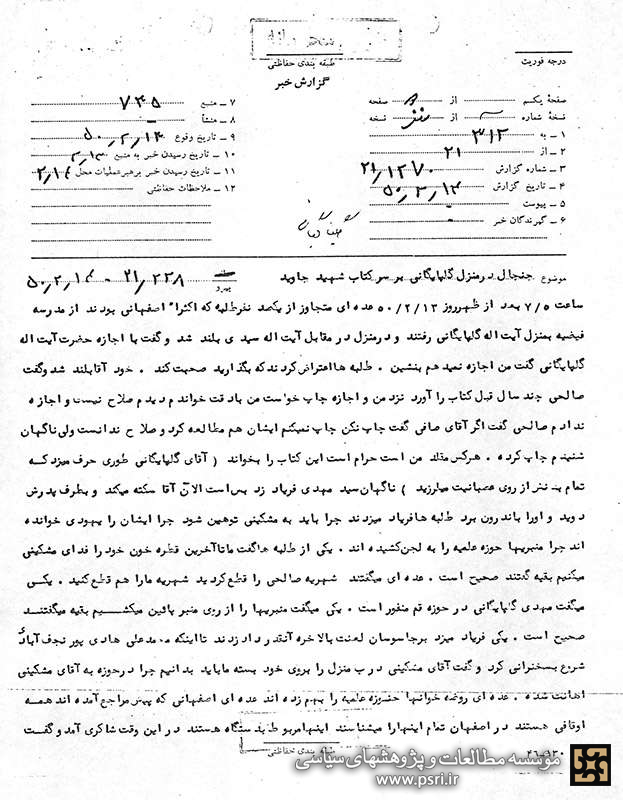 طبقه بندی حفاظتی
گزارش خبر
درجه فوریت
صفحهٔ یکم از صفحه
نسخهٔ شماره از نسخه
۱ - به ۳۱۲
۲ - از ۲۱
۳ - شماره گزارش ۲۱/۱۲۷۰
۴ - تاریخ گزارش ۵۰/۲/۱۴
۵ - پیوست -
۶ - گیرندگان خبر -
۷ - منبع ۷۴۵
۸ - منشأ -
۹ - تاریخ وقوع ۵۰/۲/۱۳
۱۰ - تاریخ رسیدن خبر به منبع
۱۱ - تاریخ رسیدن خبر برهبرعملیات محل ۲/۱۴
۱۲ - ملاحظات حفاظتی
موضوع جنجال درمنزل گلپایگانی بر سر کتاب شهید جاوید پیرو ۲۱/۲۳۸ - ۵۰/۲/۱۴
ساعت ۷/۵ بعد از ظهرروز ۵۰/۲/۱۳ عده ای متجاوز از یکصد نفرطلبه که اکثرا" اصفهانی بودند از مدرسه
فیضیه بمنزل آیت اله گلپایگانی رفتند و درمنزل در مقابل آیت اله سیدی بلند شد و گفت با اجازه حضرت آیت اله
گلپایگانی گفت من اجازه نمیدهم بنشین . طلبه ها اعتراض کردند که بگذارید صحبت کند . خود آقا بلند شد وگفت
صالحی چند سال قبل کتاب را آورد نزد من و اجازه چاپ خواست من بادقت خواندم دیدم صلاح نیست و اجازه
ندادم صالحی گفت اگر آقای صافی گفت چاپ نکن چاپ نمیکنم ایشان هم مطالعه کرد و صلاح ندانست ولی ناگهان
شنیدم چاپ کرده . هرکس مقلد من است حرام است این کتاب را بخواند ( آقای گلپایگانی طوری حرف میزد که
تمام بدنش از روی عصبانیت میلرزید ) ناگهان سید مهدی فریاد زد بس است الان آقا سکته میکند و بطرف پدرش
دوید و اورا باندرون برد طلبه ها فریاد میزدند چرا باید به مشکینی توهین شود چرا ایشان را یهودی خوانده
اند چرا منبریها حوزه علمیه را به لجن کشیده اند . یکی از طلبه ها گفت ما تا آخرین قطره خون خود را فدای مشکینی
میکنیم بقیه گفتند صحیح است . عده ای میگفتند شهریه صالحی را قطع کردید شهریه مارا هم قطع کنید . یکی
میگفت مهدی گلپایگانی در حوزه قم منفور است . یکی میگفت منبریها را از روی منبر پائین میکشیم بقیه میگفتند
صحیح است . یکی فریاد میزد برجاسوسان لعنت بالاخره آنقدر داد زدند تا اینکه محمد علی هادی پور نجف آبادی
شروع بسخنرانی کرد و گفت آقای مشکینی درب منزل را بروی خود بسته ما باید بدانیم چرا درحوزه به آقای مشکینی
اهانت شده . عده ای روضه خوانها حوزه علمیه را بهم زده اند عده ای اصفهانی که پیش مراجع آمده اند همه
اوقافی هستند در اصفهان تمام اینها را میشناسند اینها مربوط بدستگاه هستند در این وقت شاکری آمد و گفت
طبقه بندی حفاظتی
۴۶-۹۳۰
موسسه مطالعات و پژوهشهای سیاسی
www.psri.ir